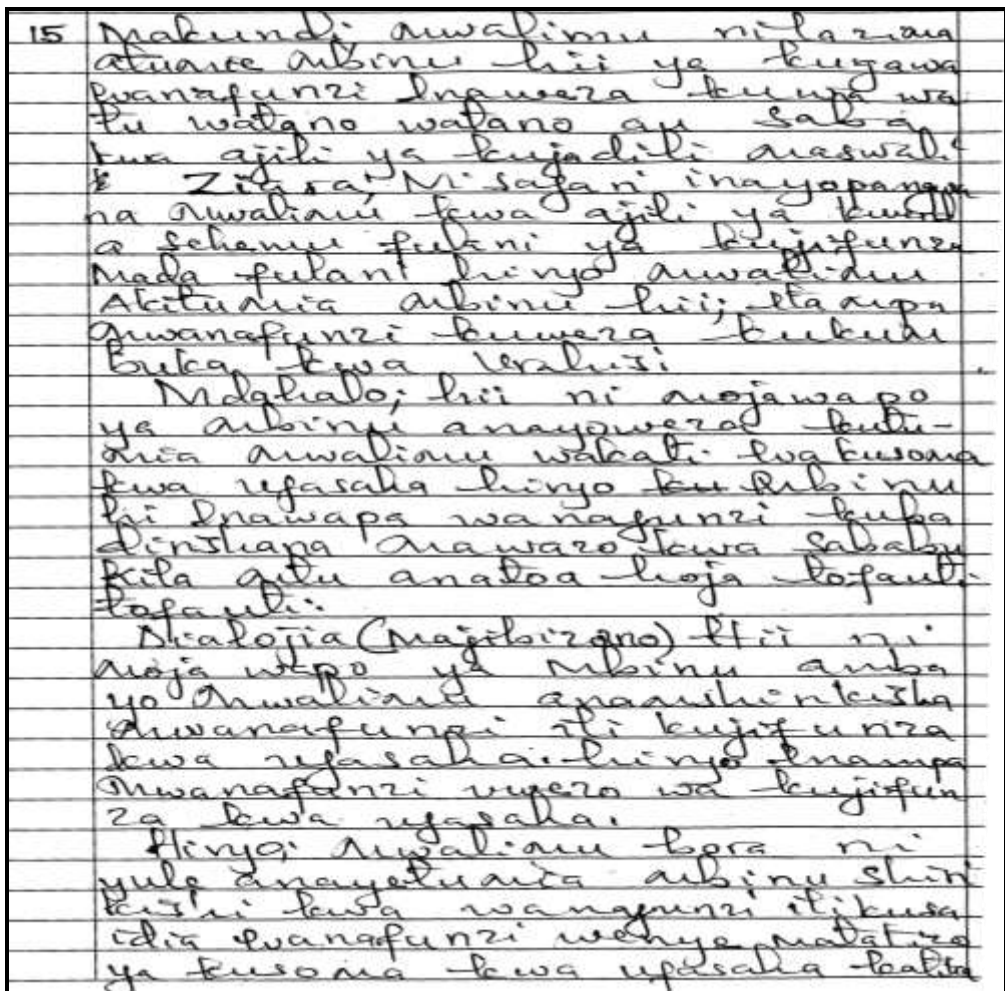 15 Makundi mwalimu ni lazima
atumie mbinu hii ya kugawa
wanafunzi inaweza kuwa wa
tu watano watano au saba
kwa ajili ya kujadili maswali
Ziara; Ni safari inayopangwa
na mwalimu kwa ajili ya kwend
a sehemu fulani ya kujifunza
Mada fulani hivyo mwalimu
Akitumia mbinu hii; itampa
mwanafunzi kuweza kukum
buka kwa urahisi.
Mdahalo; hii ni mojawapo
ya mbinu anayoweza kutu-
mia mwalimu wakati wa kusoma
kwa ufasaha hivyo Mbinu
hi inawapa wanafunzi kuba
dirishana mawazo kwa sababu
kila mtu anatoa hoja tofauti
tofauti.
Dialojia (Majibizano) Hii ni
moja wapo ya Mbinu amba
yo mwalimu anamshirikisha
mwanafunzi ili kujifunza
kwa ufasaha. hivyo inampa
Mwanafunzi uwezo wa kujifun
za kwa ufasaha.
Hivyo; Mwalimu bora ni
yule anayetumia mbinu shiri
kishi kwa wanafunzi ili kusa
idia wanafunzi wenye matatizo
ya kusoma kwa ufasaha katika